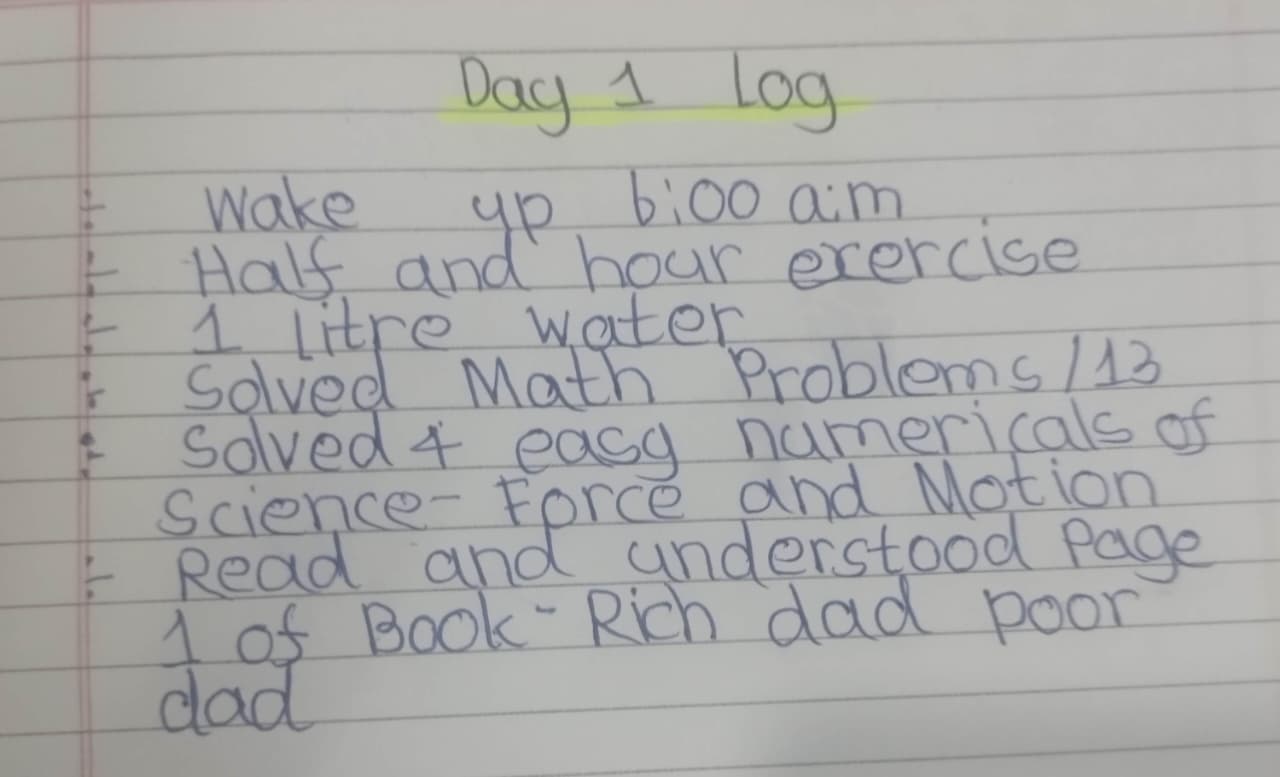 Day 1 Log
:- Wake up 6:00 a.m
:- Half and hour exercise
:- 1 litre water
:- Solved Math Problems/13
:- Solved 4 easy numericals of
Science- Force and Motion
:- Read and understood Page
1 of Book- Rich dad poor
dad